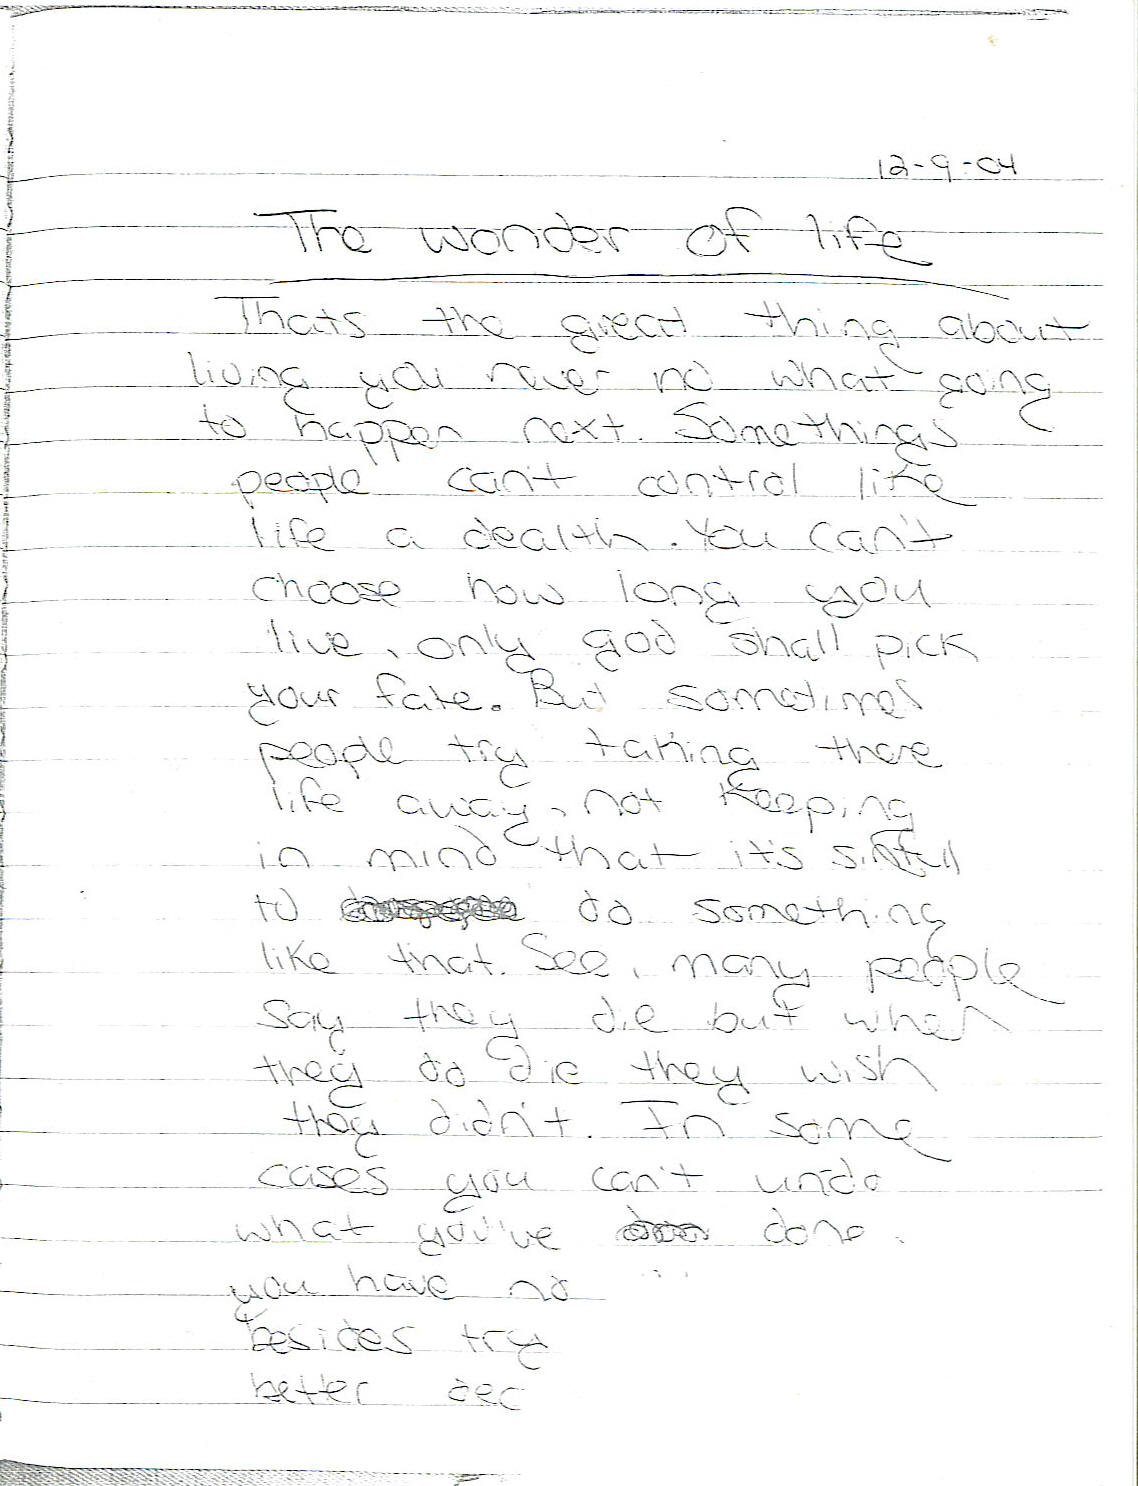 12-9-04
The wonder of life
Thats the great thing about
living you never no what going
to happen next. Somethings
people can't control like
life a dealth. You can't
choose how long you
live, only god shall pick
your fate. But sometimes
people try taking there
life away, not keeping
in mind that it's sinful
to do something
like that. See, many people
say they die but when
they do die they wish
they didn't. In some
cases you can't undo
what you've done.
you have no
besides try
better dec